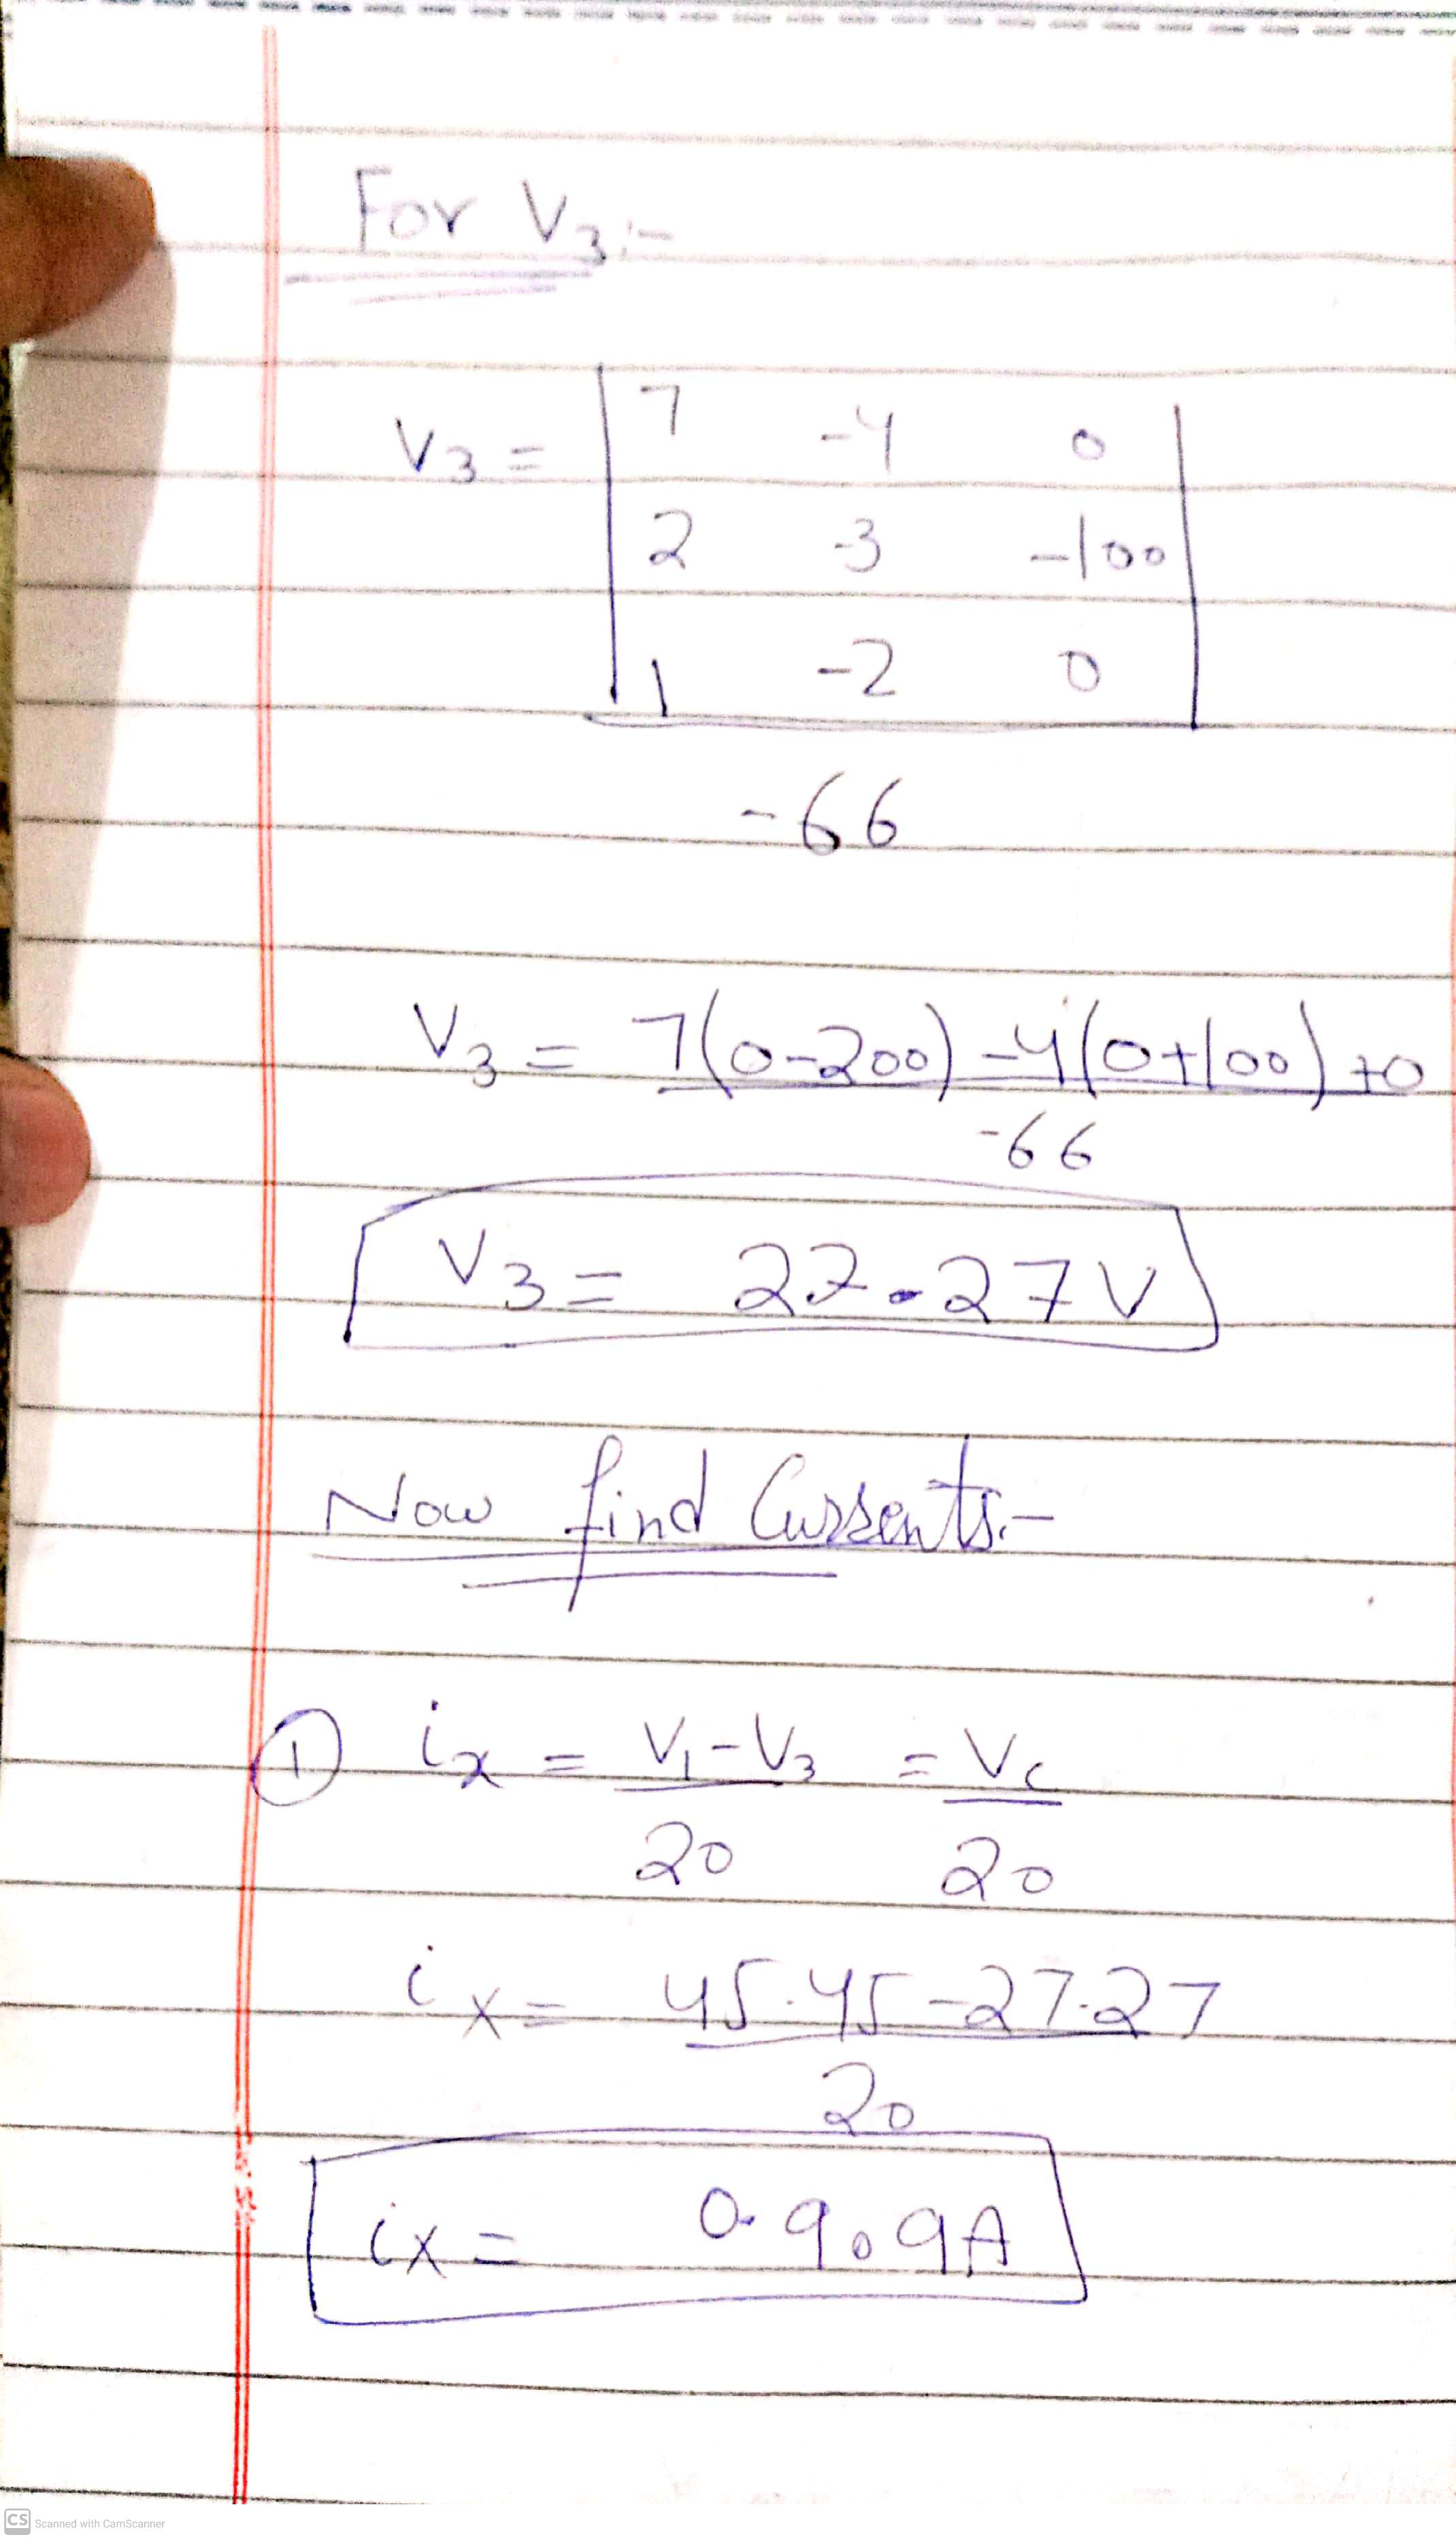 For V3:-
V3 = | 7 -4 0 |
| 2 -3 -100 |
| 1 -2 0 |
-66
V3 = 7(0-200) -4(0+100) +0
-66
V3 = 27.27V
Now find Currents:-
① ix = V1-V3 = Vc
20 20
ix = 45.45-27.27
20
ix = 0.909A
CS Scanned with CamScanner